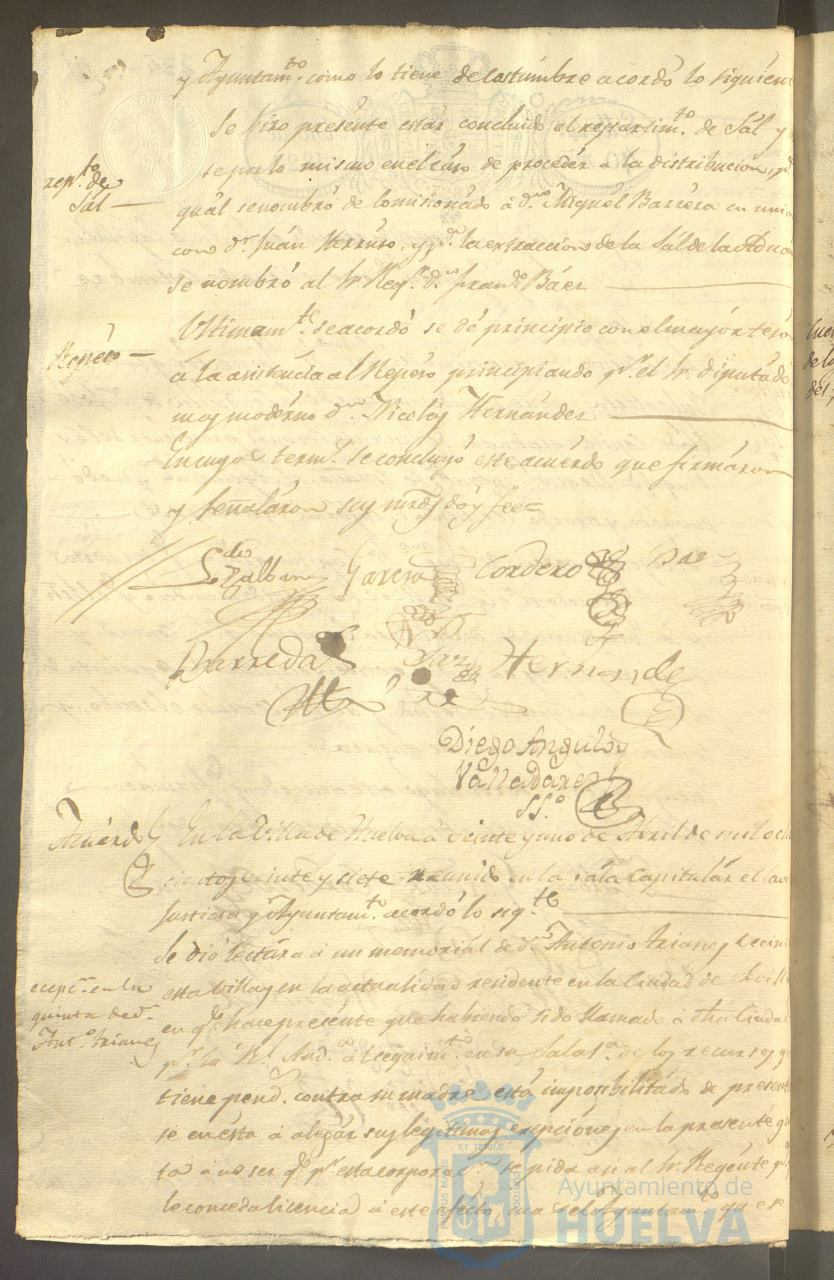 y Ayuntam.to como lo tiene de costúmbre acordó lo siguien
Se hizo presente estár concluido el repartim.to de Sál y
rep.to de
Sál —
se por lo mismo en el cáso de procedér a la distribución p.a
quál se nombró de comisionádo á d.n Miguél Barréra en unio
con d.n Juán Herréro, y p.a la extraccion de la Sál de la Aduan
se nombró al Sr. Reg.r d.n Fran.co Báez
Ultimam.te se acordó se dé principio con el mayór
Repéso —
á la asisténcia al Repéso principiando p.r el Sr. Diputádo
mas modérno d.n Nicolás Hernández
En cuyos term.s se concluyó este acuérdo que firmáron
y señaláron sus mrds doy fee=
García Cordero Bae
Barreda Hernande
Diego Angulo y
Valladares
SS.o
Acuérdo En la Villa de Huelva á veinte y uno de Abril de mil och
cientos veinte y siete reunido en la sála Capitulár el
Justicia y Ayuntam.to acordó lo sig.te
Se dió lectúra á un memoriál de d.n Antonio Trianes vecin
esta Villa y en la actualidad residente en la Ciudad de Sevill
excepc.n en la
quinta de d.n
Ant.o Trianes
en q.e hace presente que habiéndo sido llamado á dha Ciuda
p.r la R.l Aud.a al seguim.to en su Sala de los recursos q
tiene pend.s contra su madre está imposibilitádo de present
se en ésta á alegár sus legítimas excepciones en la presente q
ta a no ser q.e p.r esta corporac.n se pida así al Sr. Regénte p.a
le conceda licencia á este efécto
Ayuntamiento de
HUELVA